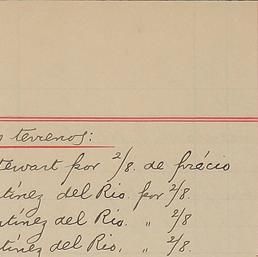 s terrenos:
tewart por 2/8. de précio
tínez del Rio. por 2/8.
tínez del Rio. " 2/8
tínez del Rio. " 2/8.